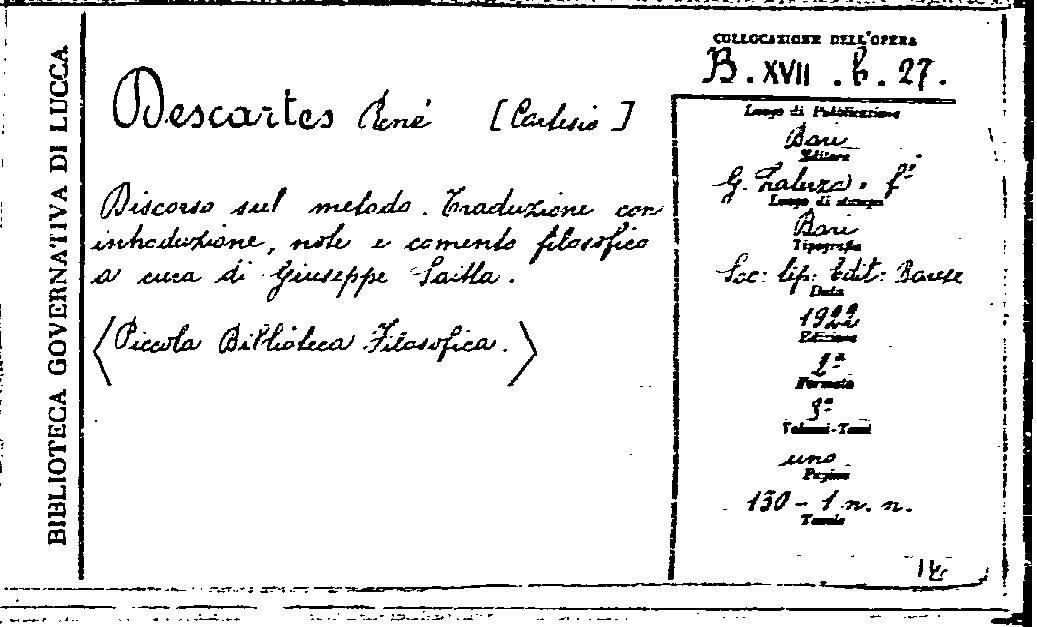 BIBLIOTECA GOVERNATIVA DI LUCCA
COLLOCAZIONE DELL'OPERA
B. XVII . b. 27.
Descartes René [Cartesio]
Discorso sul metodo. Traduzione con
introduzione, note e comento filosofico
a cura di Giuseppe Saitta.
〈Piccola Biblioteca Filosofica.〉
Luogo di Pubblicazione
Bari
Editore
G. Laterza. f.i
Luogo di stampa
Bari
Tipografia
Soc: tip: Edit: Barese
Data
1922
Edizione
2ª
Formato
8º
Volumi-Tomi
uno
Pagine
130 - 1 n. n.
Tavole